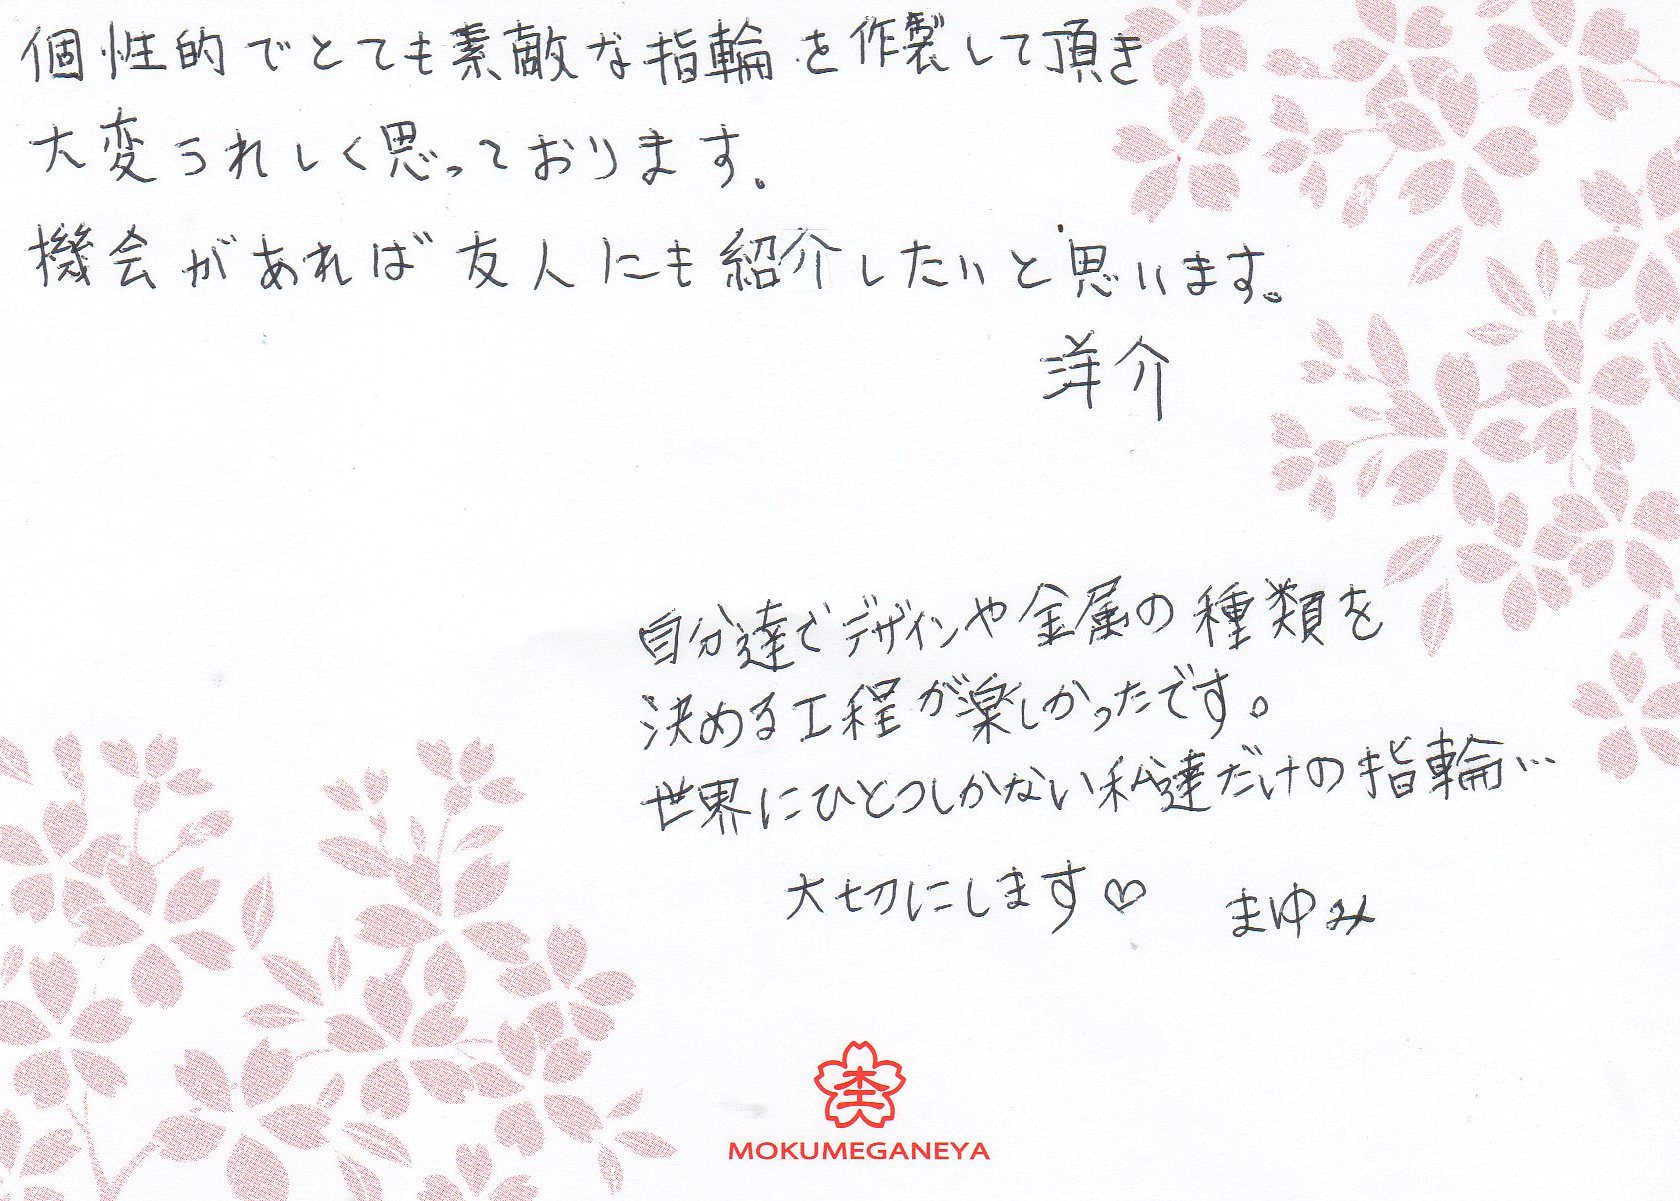 個性的でとても素敵な指輪を作製して頂き
大変うれしく思っております。
機会があれば友人にも紹介したいと思います。
洋介
自分達でデザインや金属の種類を
決める工程が楽しかったです。
世界にひとつしかない私達だけの指輪…
大切にします♡ まゆみ
MOKUMEGANEYA